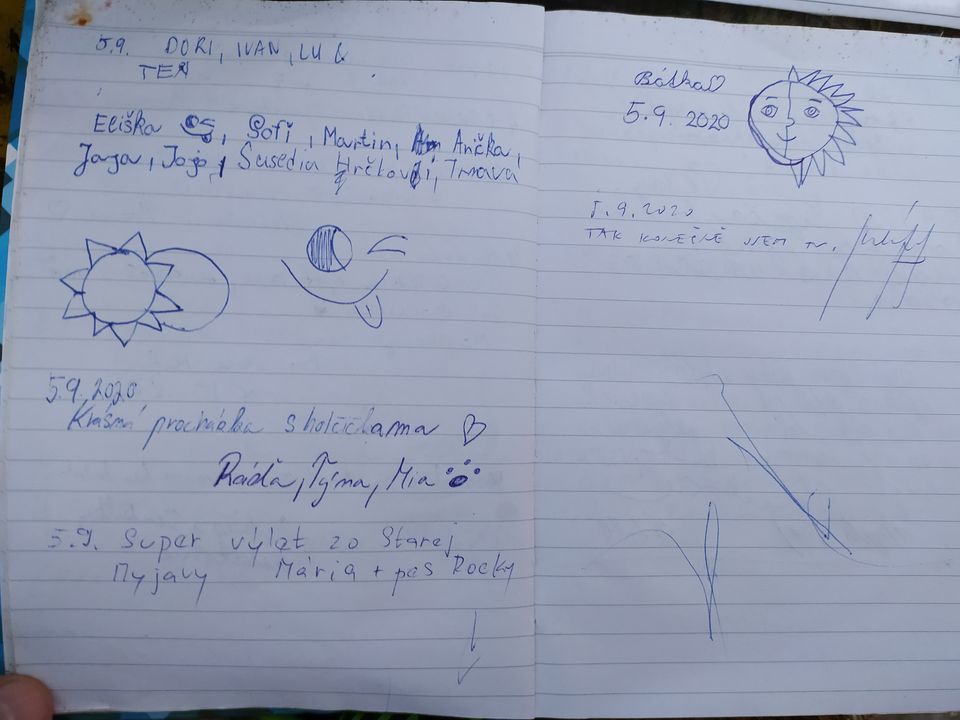 5.9. DORI, IVAN, LU &
TER
Eliška, Sofi, Martin, Anička,
Jaja, Jogo, Susedia Hrčkovi, Trnava
5.9.2020
Krásná procházka s holčičkama ♡
Ráďa, Týna, Mia
5.9. Super výlet zo Starej
Myjavy Mária + pes Rocky
Bátka♡
5.9.2020
5.9.2020
TAK KONEČNĚ JSEM TU.